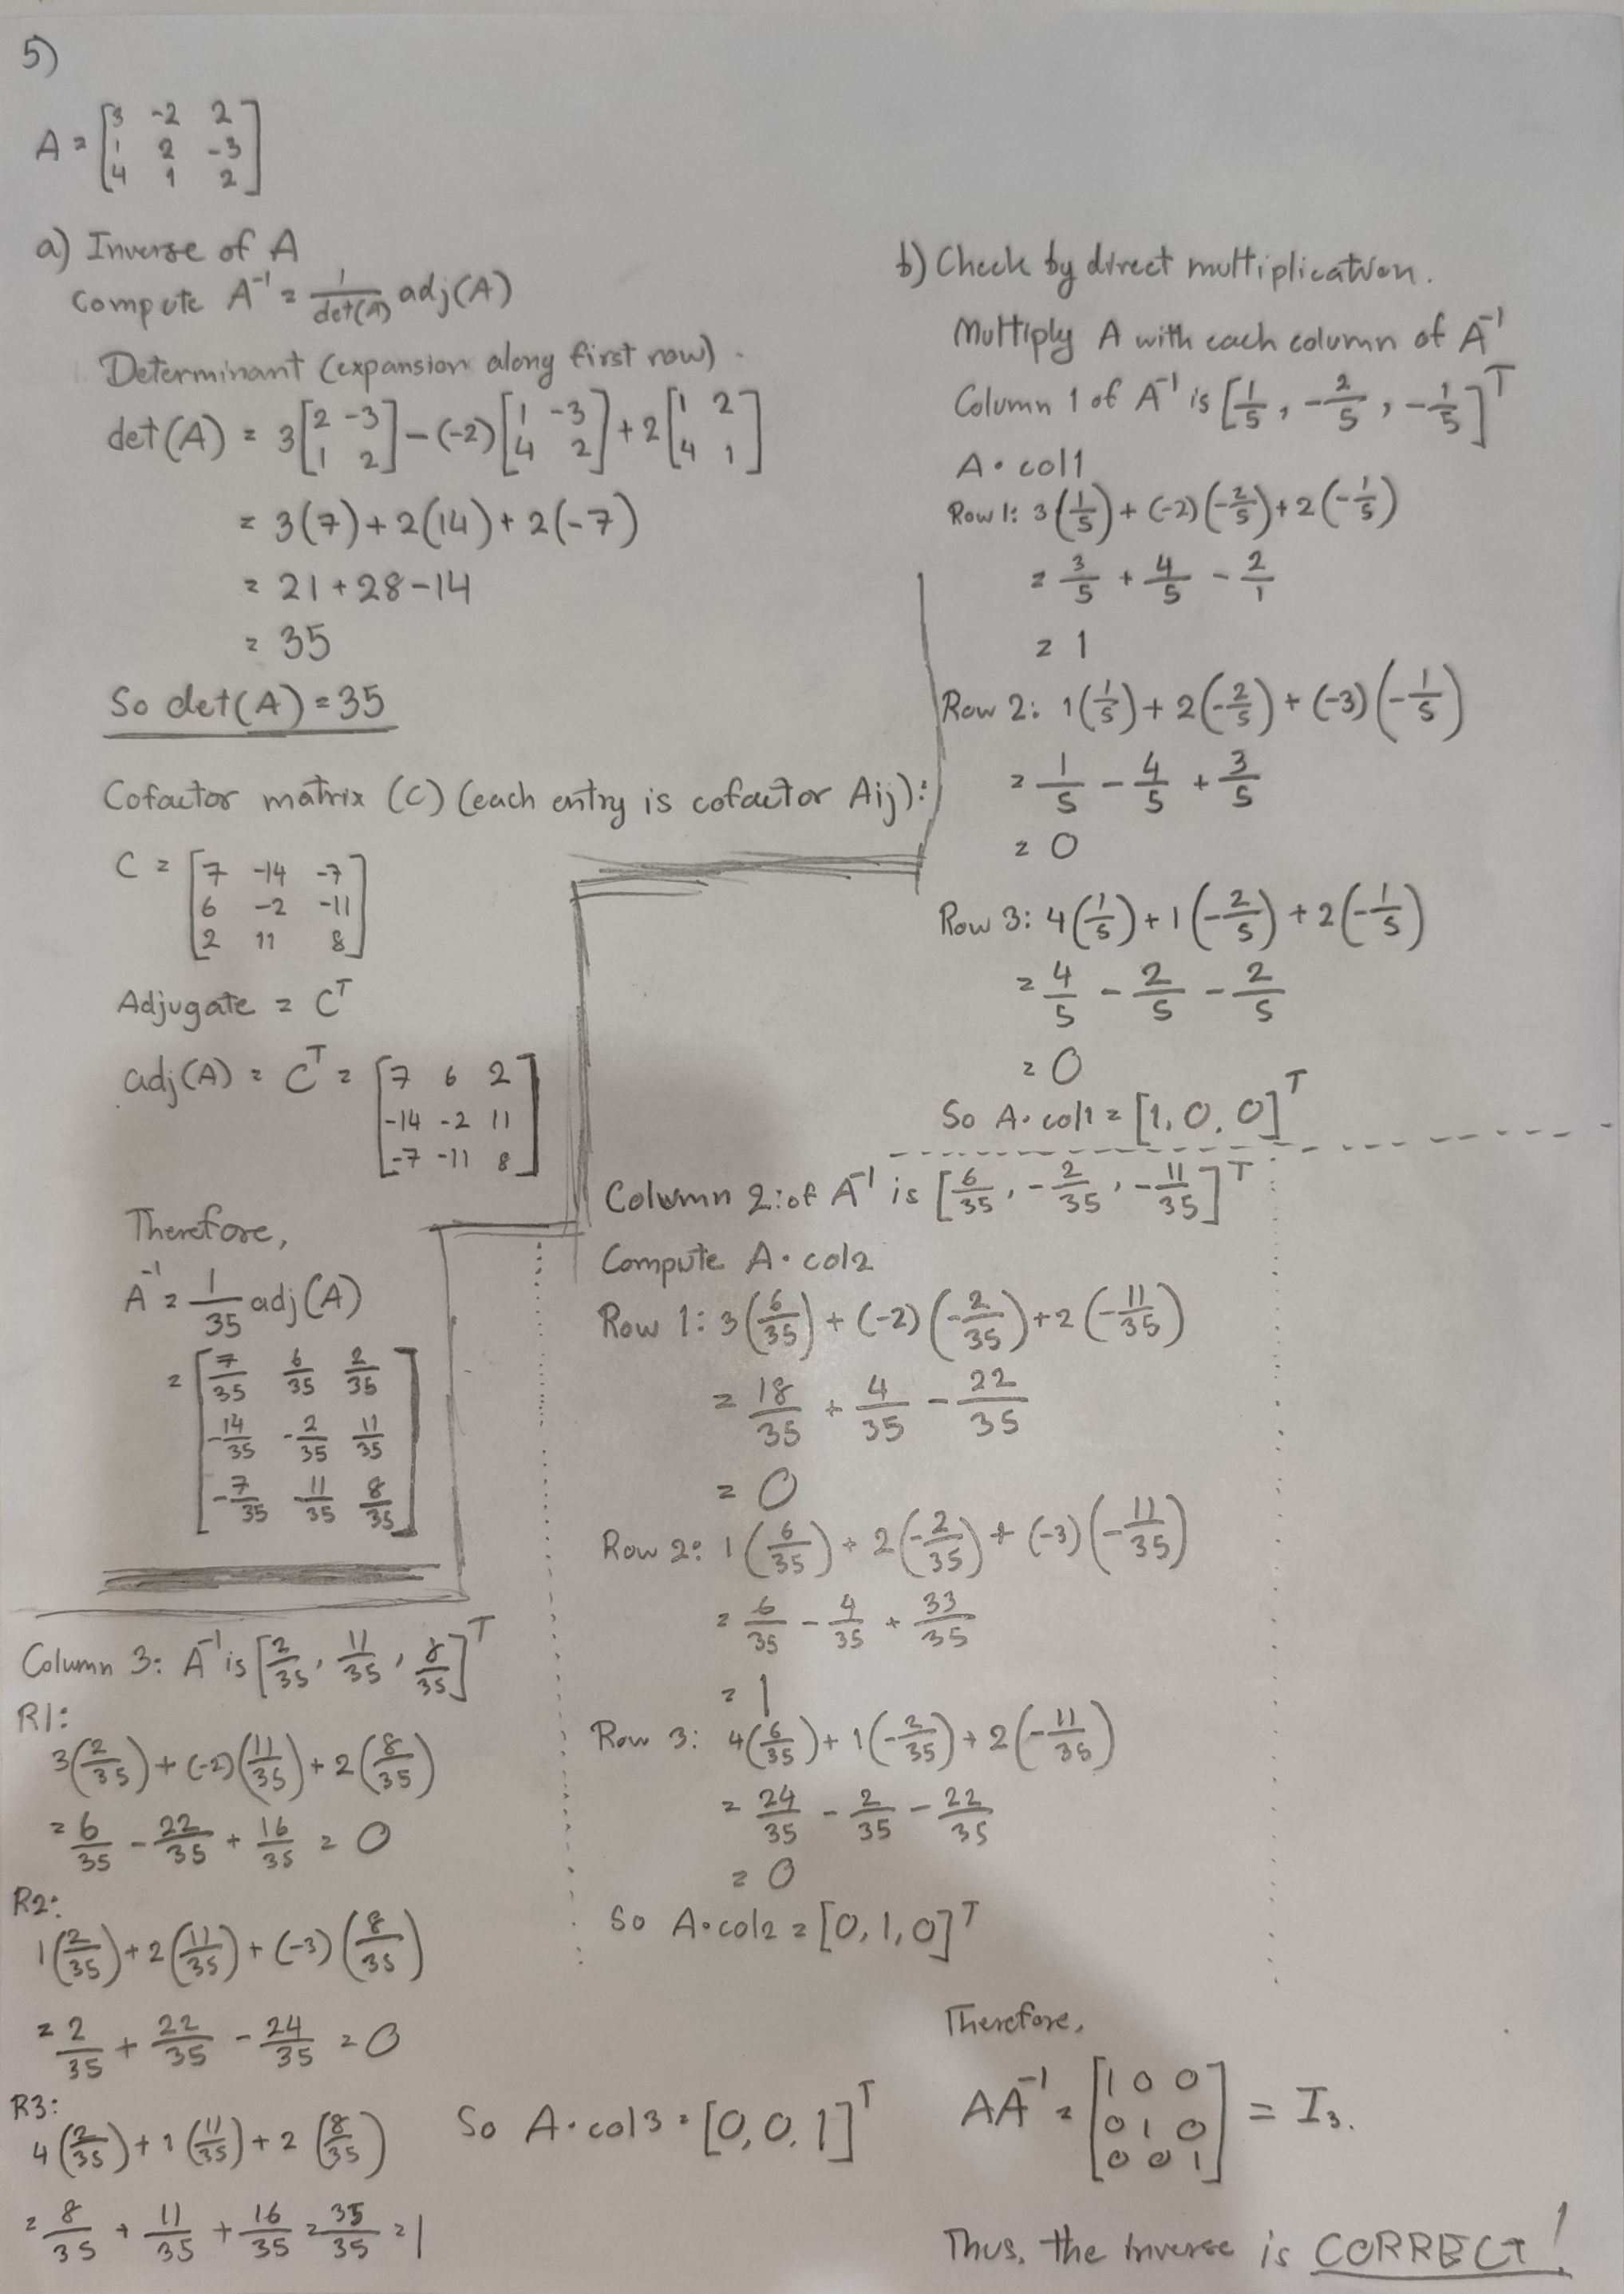 5)
A = [3 -2 2
1 2 -3
4 1 2]
a) Inverse of A
Compute A⁻¹ = 1/det(A) adj(A)
Determinant (expansion along first row).
det(A) = 3[2 -3; 1 2] - (-2)[1 -3; 4 2] + 2[1 2; 4 1]
= 3(7) + 2(14) + 2(-7)
= 21 + 28 - 14
= 35
So det(A) = 35
Cofactor matrix (C) (each entry is cofactor Aij):
C = [7 -14 -7
6 -2 -11
2 11 8]
Adjugate = Cᵀ
adj(A) = Cᵀ = [7 6 2
-14 -2 11
-7 -11 8]
Therefore,
A⁻¹ = 1/35 adj(A)
= [7/35 6/35 2/35
-14/35 -2/35 11/35
-7/35 -11/35 8/35]
b) Check by direct multiplication.
Multiply A with each column of A⁻¹
Column 1 of A⁻¹ is [1/5, -2/5, -1/5]ᵀ
A · col1
Row 1: 3(1/5) + (-2)(-2/5) + 2(-1/5)
= 3/5 + 4/5 - 2/1
= 1
Row 2: 1(1/5) + 2(-2/5) + (-3)(-1/5)
= 1/5 - 4/5 + 3/5
= 0
Row 3: 4(1/5) + 1(-2/5) + 2(-1/5)
= 4/5 - 2/5 - 2/5
= 0
So A · col1 = [1, 0, 0]ᵀ
Column 2: of A⁻¹ is [6/35, -2/35, -11/35]ᵀ
Compute A · col2
Row 1: 3(6/35) + (-2)(-2/35) + 2(-11/35)
= 18/35 + 4/35 - 22/35
= 0
Row 2: 1(6/35) + 2(-2/35) + (-3)(-11/35)
= 6/35 - 4/35 + 33/35
= 1
Row 3: 4(6/35) + 1(-2/35) + 2(-11/35)
= 24/35 - 2/35 - 22/35
= 0
So A · col2 = [0, 1, 0]ᵀ
Column 3: A⁻¹ is [2/35, 11/35, 8/35]ᵀ
R1:
3(2/35) + (-2)(11/35) + 2(8/35)
= 6/35 - 22/35 + 16/35 = 0
R2:
1(2/35) + 2(11/35) + (-3)(8/35)
= 2/35 + 22/35 - 24/35 = 0
R3:
4(2/35) + 1(11/35) + 2(8/35)
= 8/35 + 11/35 + 16/35 = 35/35 = 1
So A · col3 = [0, 0, 1]ᵀ
Therefore,
AA⁻¹ = [1 0 0
0 1 0
0 0 1] = I₃.
Thus, the inverse is CORRECT!